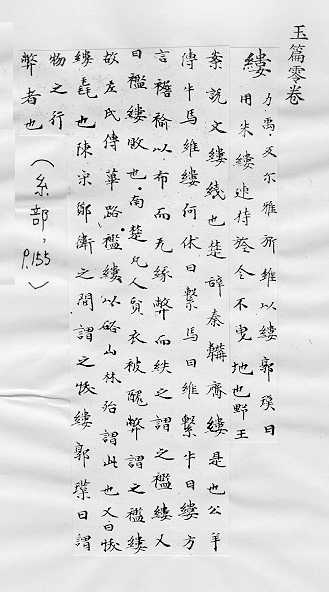 玉篇零卷
縷 力禹反尔雅所維以縷郭璞曰
用朱縷連持旒令不曳地也野王
案説文縷綫也楚辭秦鞲齊縷是也公羊
傳牛馬維縷何休曰繫馬曰維繫牛曰縷方
言襜褕以布而无緣弊而紩之謂之襤縷又
曰襤縷敗也南楚凡人貧衣被醜弊謂之襤縷
故左氏傳蓽路襤縷以啓山林殆謂此也又曰帗
縷毳也陳宋鄭衛之間謂之帗縷郭璞曰謂
物之行
弊者也
(糸部, P.155)